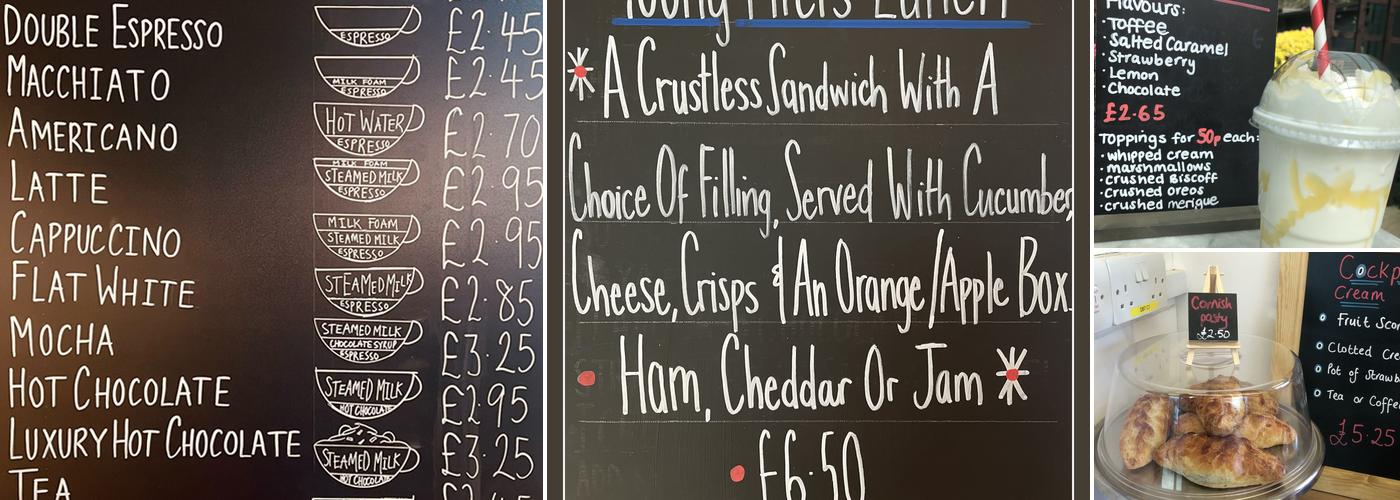 DOUBLE ESPRESSO ESPRESSO £2.45
MACCHIATO MILK FOAM ESPRESSO £2.45
AMERICANO HOT WATER ESPRESSO £2.70
LATTE MILK FOAM STEAMED MILK ESPRESSO £2.95
CAPPUCCINO MILK FOAM STEAMED MILK ESPRESSO £2.95
FLAT WHITE STEAMED MILK ESPRESSO £2.85
MOCHA STEAMED MILK CHOCOLATE SYRUP ESPRESSO £3.25
HOT CHOCOLATE STEAMED MILK HOT CHOCOLATE £2.95
LUXURY HOT CHOCOLATE STEAMED MILK HOT CHOCOLATE £3.25
TEA
A Crustless Sandwich With A
Choice Of Filling, Served With Cucumber,
Cheese, Crisps & An Orange/Apple Box.
Ham, Cheddar Or Jam
£6.50
Flavours:
• Toffee
• Salted Caramel
• Strawberry
• Lemon
• Chocolate
£2.65
Toppings for 50p each:
• whipped cream
• marshmallows
• crushed Biscoff
• crushed oreos
• crushed merigue
Cornish
pasty
£2.50
Cream
Fruit
Clotted
Pot of
Tea or
£5.25